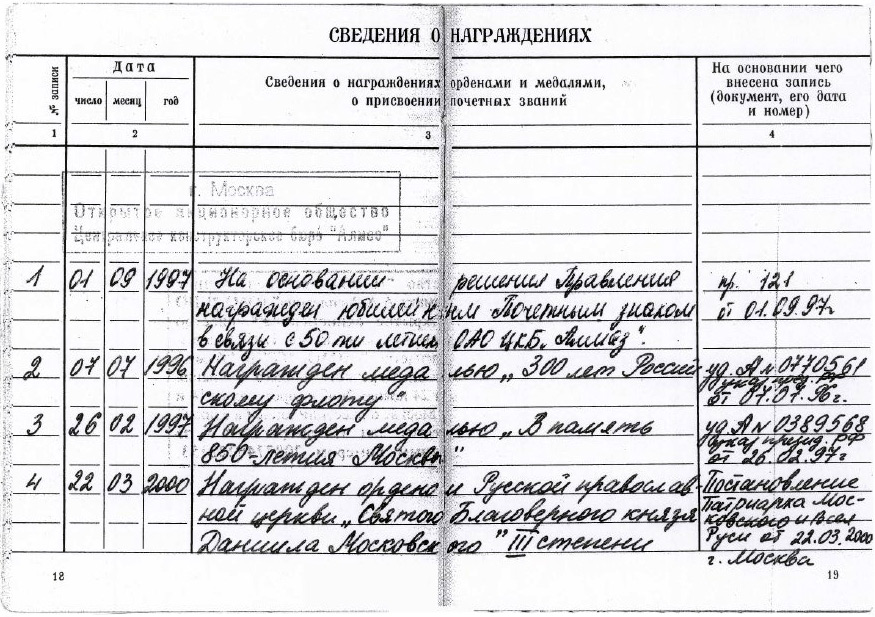 СВЕДЕНИЯ О НАГРАЖДЕНИЯХ
№ записи
Дата
число месяц год
Сведения о награждениях орденами и медалями,
о присвоении почетных званий
На основании чего
внесена запись
(документ, его дата
и номер)
1 2 3 4
г. Москва
Открытое акционерное общество
Центральное конструкторское бюро "Алмаз"
1 01 09 1997 На основании решения Правления пр. 121
награжден юбилейным Почетным знаком от 01.09.97г
в связи с 50-ти летием ОАО ЦКБ „Алмаз".
2 07 07 1996 Награжден медалью „300 лет Россий уд. А № 0770561
скому флоту" Указ през. РФ
от 07.07.96г.
3 26 02 1997 Награжден медалью „В память уд А № 0389568
850-летия Москвы" Указ презид. РФ
от 26.02.97г
4 22 03 2000 Награжден орденом Русской православ- Постановление
ной церкви „Святого Благоверного князя Патриарха Мос-
ковского и Всея
Даниила Московского" III степени Руси от 22.03.2000
г. Москва
18 19